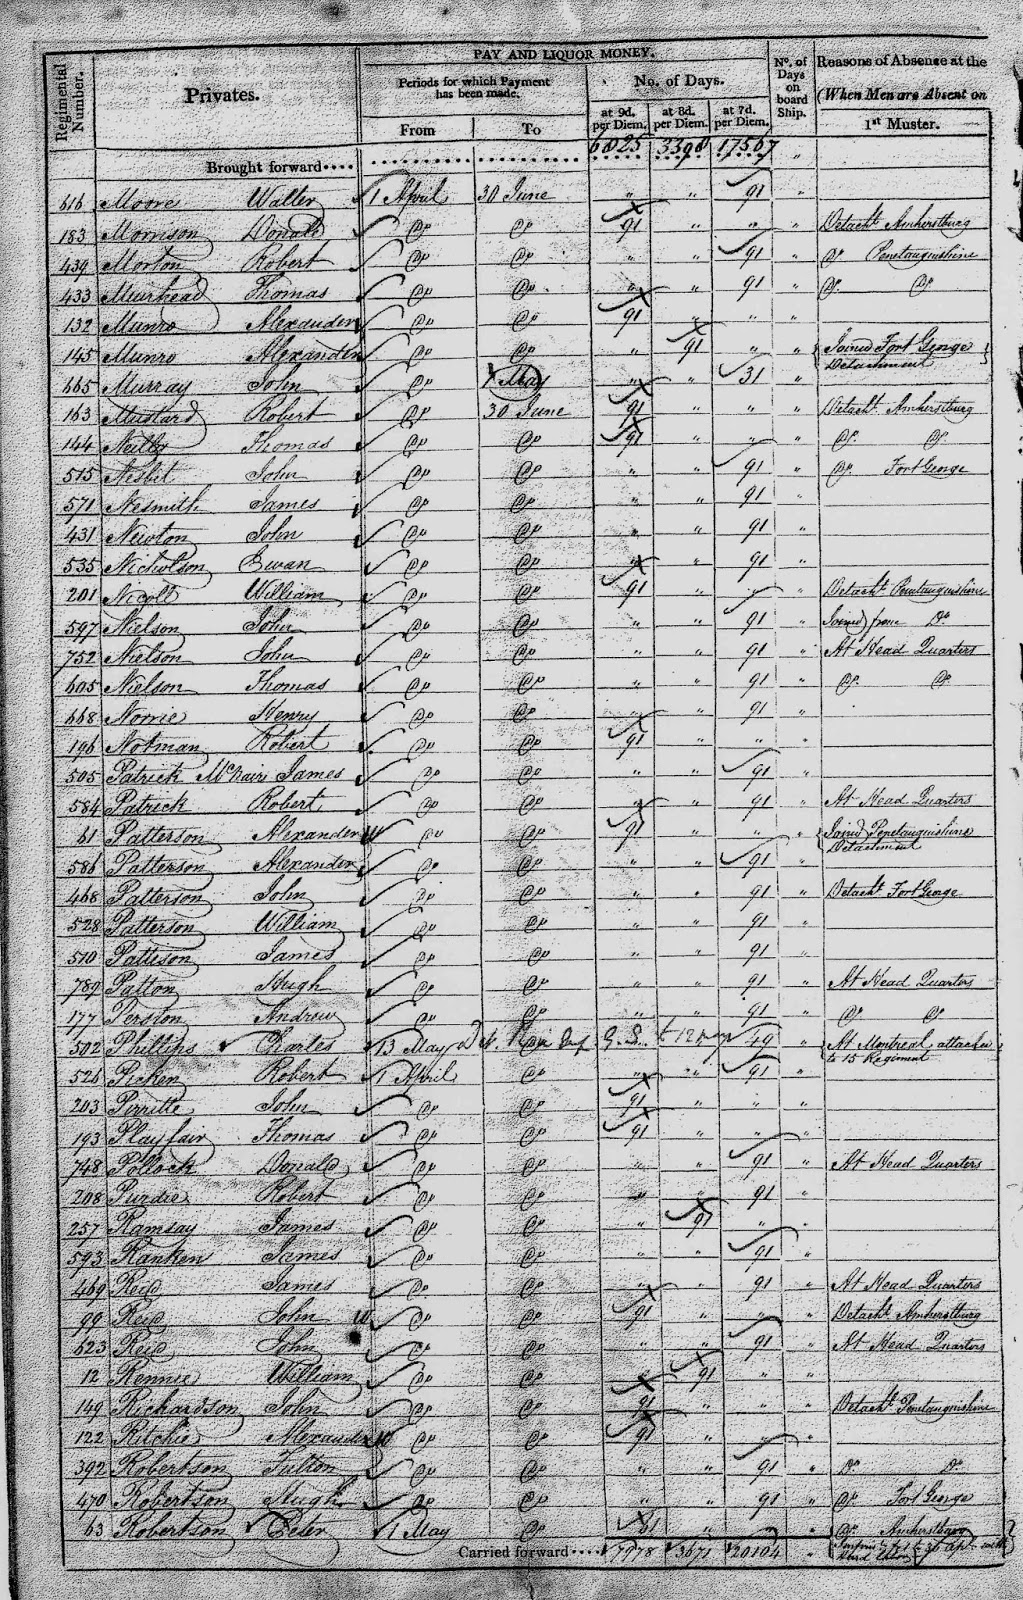 PAY AND LIQUOR MONEY.
Regimental Number. Privates. Periods for which Payment has been made. No. of Days. No. of Days on board Ship. Reasons of Absence at the
(When Men are Absent on
From To at 9d. per Diem. at 8d. per Diem. at 7d. per Diem. 1st Muster.
Brought forward 6825 3398 17567 "
616 Moore Walter 1 April 30 June " " 91 "
183 Morrison Donald Do Do 91 " " " Detacht Amherstburg
439 Morton Robert Do Do " " 91 " Do Penetanguishine
433 Muirhead Thomas Do Do " " 91 " Do Do
132 Munro Alexander Do Do 91 " " "
145 Munro Alexander Do Do " 91 " " Joined Fort George Detachment
665 Murray John Do May " " 31 "
163 Mustard Robert Do 30 June 91 " " " Detacht Amherstburg
144 Thomas Do Do 91 " " " Do Do
515 Nesbit John Do Do " " 91 " Do Fort George
571 Nesmith James Do Do " " 91 "
431 Newton John Do Do " " 91 "
535 Nicholson Ewan Do Do " " 91 "
201 Nicoll William Do Do 91 " " " Detacht Penetanguishine
597 Nielson John Do Do " " 91 " Joined from Do
752 Nielson John Do Do " " 91 " At Head Quarters
605 Nielson Thomas Do Do " " 91 " Do Do
668 Norrie Henry Do Do " " 91 "
196 Notman Robert Do Do 91 " " "
505 Patrick McNair James Do Do " " 91 "
584 Patrick Robert Do Do " " 91 " At Head Quarters
61 Patterson Alexander Do Do 91 " " " Joined Penetanguishine Detachment
586 Patterson Alexander Do Do " " 91 "
468 Patterson John Do Do " " 91 " Detacht Fort George
528 Patterson William Do Do " " 91 "
510 Patteson James Do Do " " 91 "
789 Patton Hugh Do Do " " 91 " At Head Quarters
177 Perston Andrew Do Do " " 91 " Do Do
502 Phillips Charles 13 May 49 " At Montreal attached to 15 Regiment
526 Picken Robert 1 April Do " " 91 "
203 Pirritte John Do Do 91 " " "
193 Playfair Thomas Do Do 91 " " "
748 Pollock Donald Do Do " " 91 " At Head Quarters
208 Purdie Robert Do Do " " 91 "
257 Ramsay James Do Do " 91 " "
593 Ranken James Do Do " " 91 "
469 Reid James Do Do " " 91 " At Head Quarters
99 Reid John Do Do 91 " " " Detacht Amherstburg
623 Reid John Do Do " " 91 " At Head Quarters
12 Rennie William Do Do " 91 " "
149 Richardson John Do Do 91 " " " Detacht Penetanguishine
122 Ritchie Alexander Do Do 91 " " "
392 Robertson Fulton Do Do " " 91 " Do Do
470 Robertson Hugh Do Do " " 91 " Do Fort George
63 Robertson Peter 1 May Do 61 " " " Do Amherstburg
Carried forward 7978 3671 20104 "